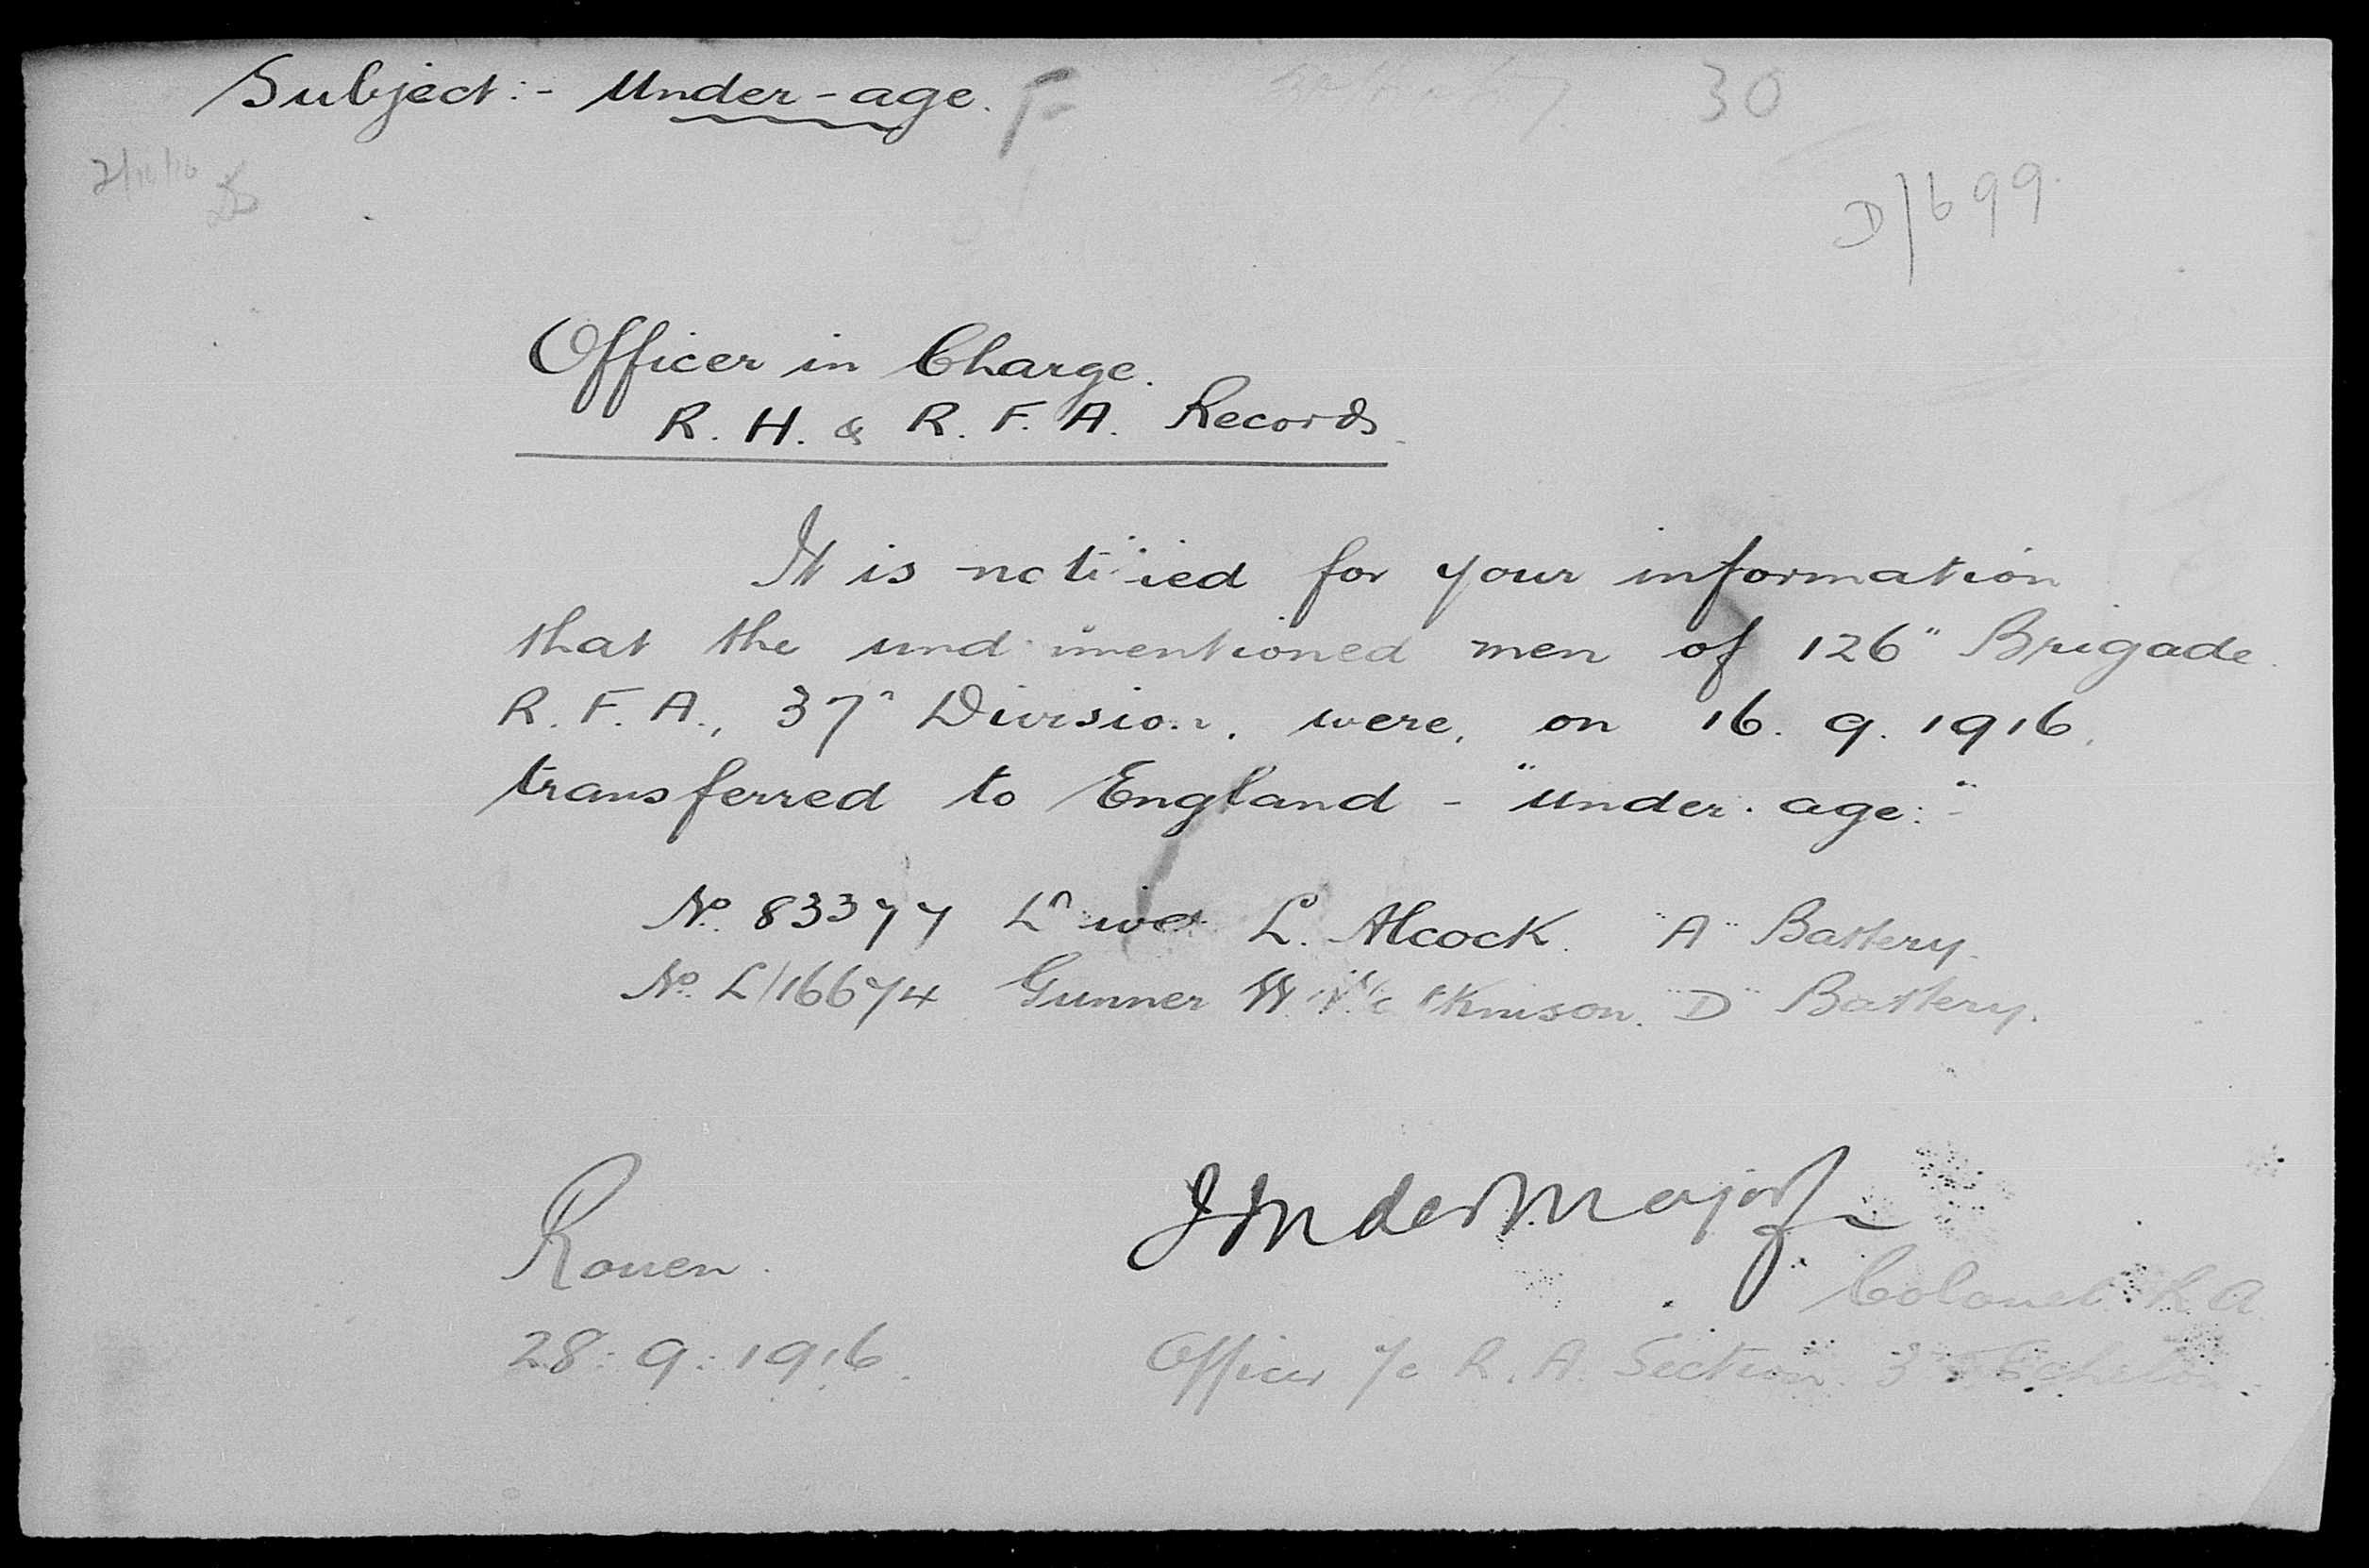 Subject:- Under-age. F
30
2/10/16
D/699
Officer in Charge.
R. H. & R. F. A. Records.
It is notified for your information
that the undermentioned men of 126" Brigade
R. F. A., 37" Division, were, on 16. 9. 1916,
transferred to England - "under. age:-"
No. 83377 L. Alcock. "A" Battery.
No. L/16674 Gunner W. "D" Battery.
Rouen.
28: 9: 1916.
Major
Colonel R. A
Officer i/c R. A. Section 3rd Echelon.